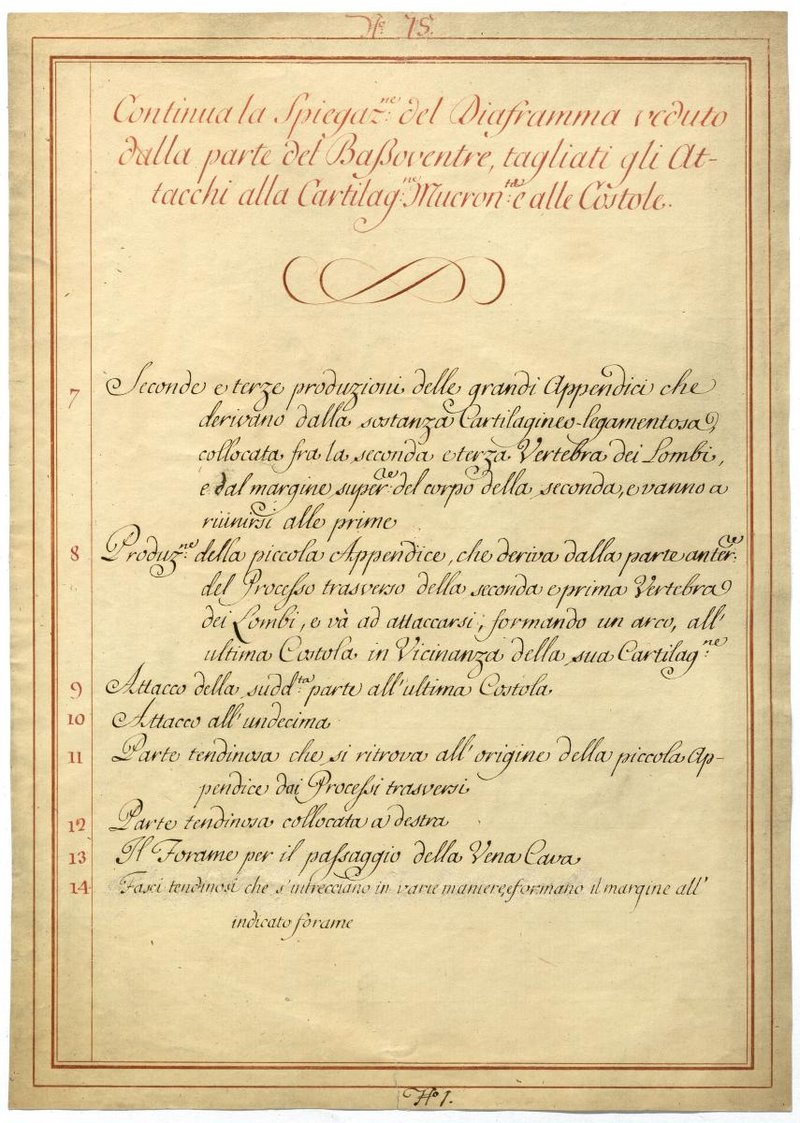 N.º 75.
Continua la Spiegaz.ne del Diaframma veduto
dalla parte del Baßoventre, tagliati gli At-
tacchi alla Cartilag.ne Mucron.ta e alle Costole.
7 Seconde e terze produzioni delle grandi Appendici che
derivano dalla sostanza Cartilagineo-legamentosa,
collocata fra la seconda e terza Vertebra dei Lombi,
e dal margine super.re del corpo della seconda, e vanno a
riunirsi alle prime
8 Produz.ne della piccola Appendice, che deriva dalla parte anter.re
del Proceſso trasverso della seconda e prima Vertebra
dei Lombi, e và ad attaccarsi, formando un arco, all'
ultima Costola in Vicinanza della sua Cartilag.ne
9 Attacco della sudd.ta parte all'ultima Costola
10 Attacco all'undecima
11 Parte tendinosa che si ritrova all'origine della piccola Ap-
pendice dai Proceſsi trasversi
12 Parte tendinosa collocata a destra
13 Il Forame per il paſsaggio della Vena Cava
14 Fasci tendinosi che s'intrecciano in varie maniere, e formano il margine all'
indicato forame
Nº 1.